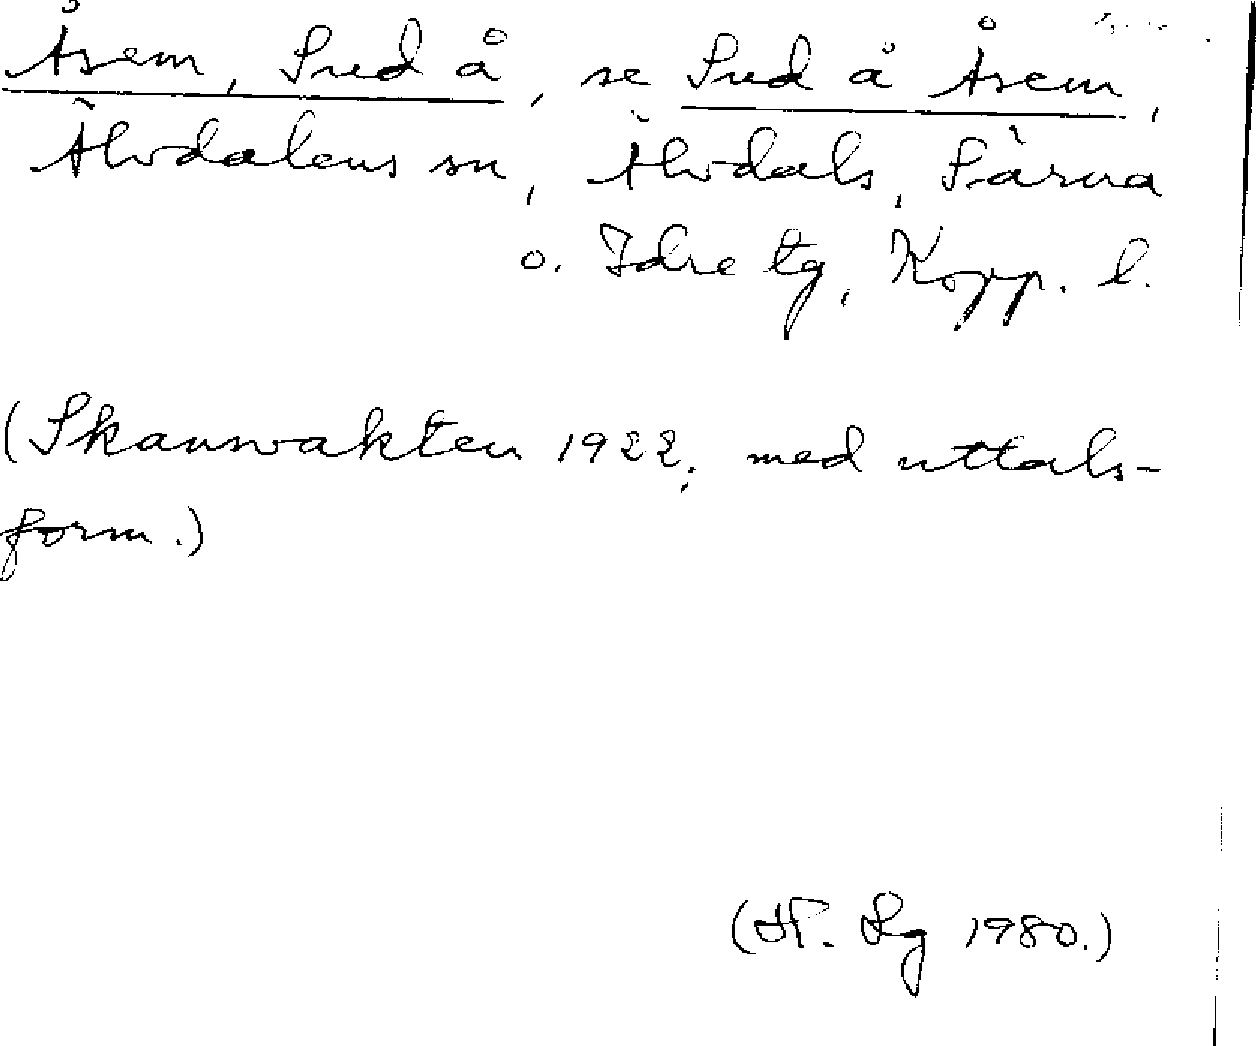 Åsem, Sred å, se Sred å Åsem,
Älvdalens sn, Älvdals, Särna
o. Idre tg, Kopp. l.
(Skansvakten 1922; med uttals-
form.)
Lg 1980.)